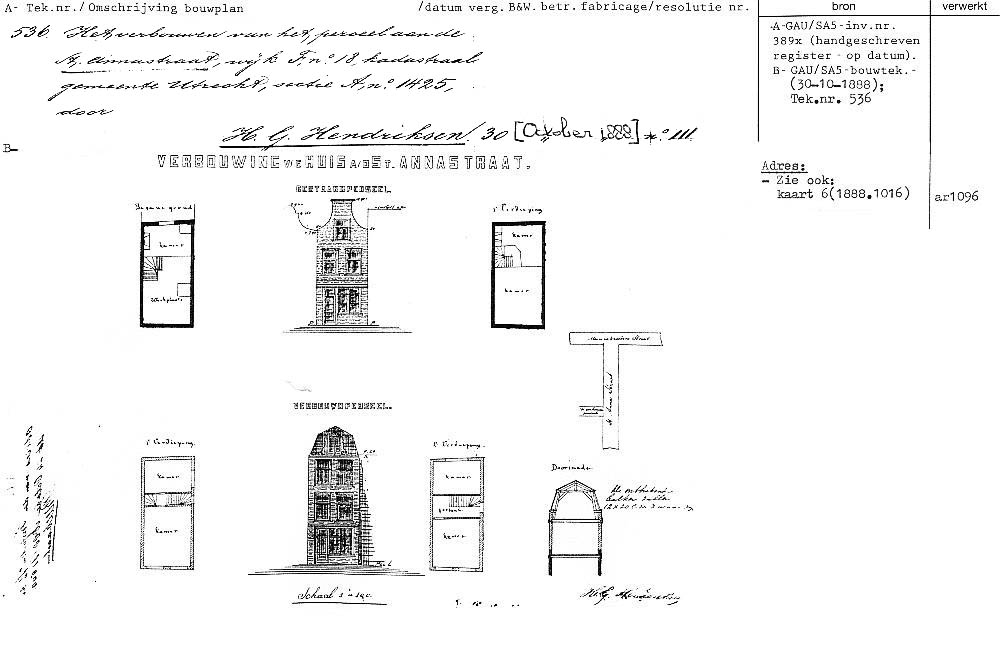 A- Tek.nr./Omschrijving bouwplan /datum verg. B&W. betr. fabricage/resolutie nr.
bron
verwerkt
536 Het verbouwen van het perceel aan de
St. Annastraat, wijk F, nº 18, kadastraal
gemeente Utrecht, sectie A, nº 1425,
door
H. G. Hendriksen/ 30 [October 1888] nº 111.
A-GAU/SA5-inv.nr.
389x (handgeschreven
register - op datum).
B- GAU/SA5-bouwtek.-
(30-10-1888);
Tek.nr. 536
Adres:
- Zie ook:
kaart 6(1888.1016)
ar1096
B-
VERBOUWING v/e HUIS a/d St. ANNASTRAAT.
BESTAANDPERSEEL.
Begane grond
kamer
Werkplaats
1e Verdieping
kamer
kamer
St. Anna straat
VERBOUWDPERSEEL.
1e Verdieping
kamer
kamer
2e Verdieping
kamer
portaal
kamer
Doorsnede
Schaal 1 à 100.
H.G. Hendriksen